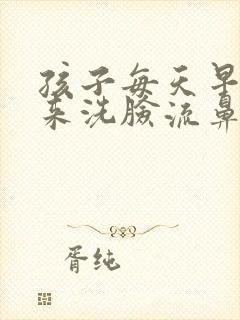 孩子每天早
来洗脸流鼻
胥纯